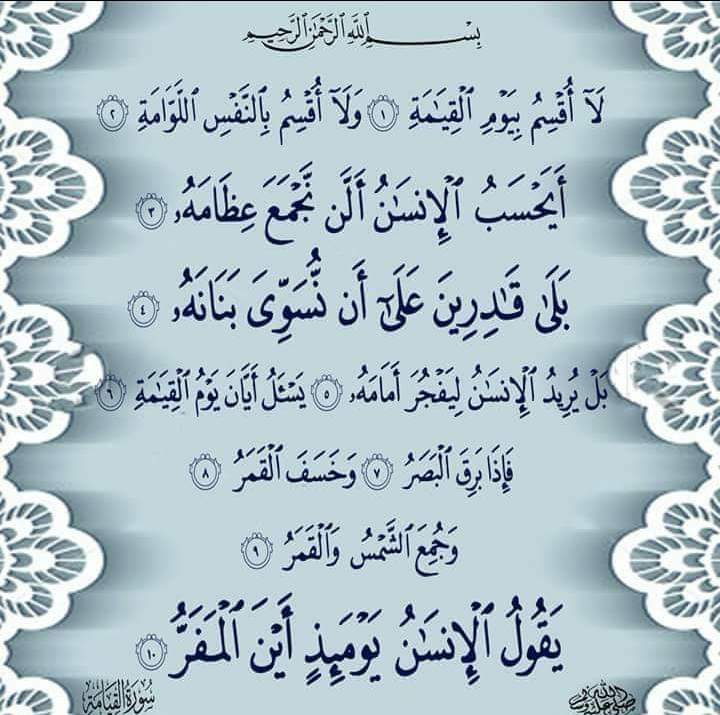 بِسْمِ ٱللَّهِ ٱلرَّحْمَٰنِ ٱلرَّحِيمِ
لَآ أُقْسِمُ بِيَوْمِ ٱلْقِيَٰمَةِ ١ وَلَآ أُقْسِمُ بِٱلنَّفْسِ ٱللَّوَّامَةِ ٢
أَيَحْسَبُ ٱلْإِنسَٰنُ أَلَّن نَّجْمَعَ عِظَامَهُۥ ٣
بَلَىٰ قَٰدِرِينَ عَلَىٰٓ أَن نُّسَوِّىَ بَنَانَهُۥ ٤
بَلْ يُرِيدُ ٱلْإِنسَٰنُ لِيَفْجُرَ أَمَامَهُۥ ٥ يَسْـَٔلُ أَيَّانَ يَوْمُ ٱلْقِيَٰمَةِ ٦
فَإِذَا بَرِقَ ٱلْبَصَرُ ٧ وَخَسَفَ ٱلْقَمَرُ ٨
وَجُمِعَ ٱلشَّمْسُ وَٱلْقَمَرُ ٩
يَقُولُ ٱلْإِنسَٰنُ يَوْمَئِذٍ أَيْنَ ٱلْمَفَرُّ ١٠
سُورَةُ القِيَامَةِ
صلى الله عليه وسلم